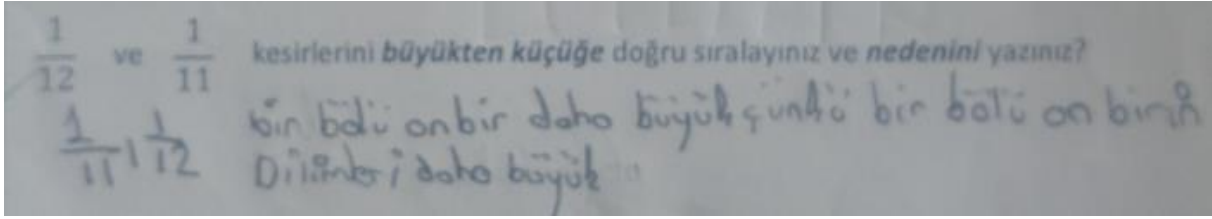 1/12 ve 1/11 kesirlerini büyükten küçüğe doğru sıralayınız ve nedenini yazınız?
1/11, 1/12 bir bölü onbir daha büyük çünkü bir bölü on birin
Dilimleri daha büyük